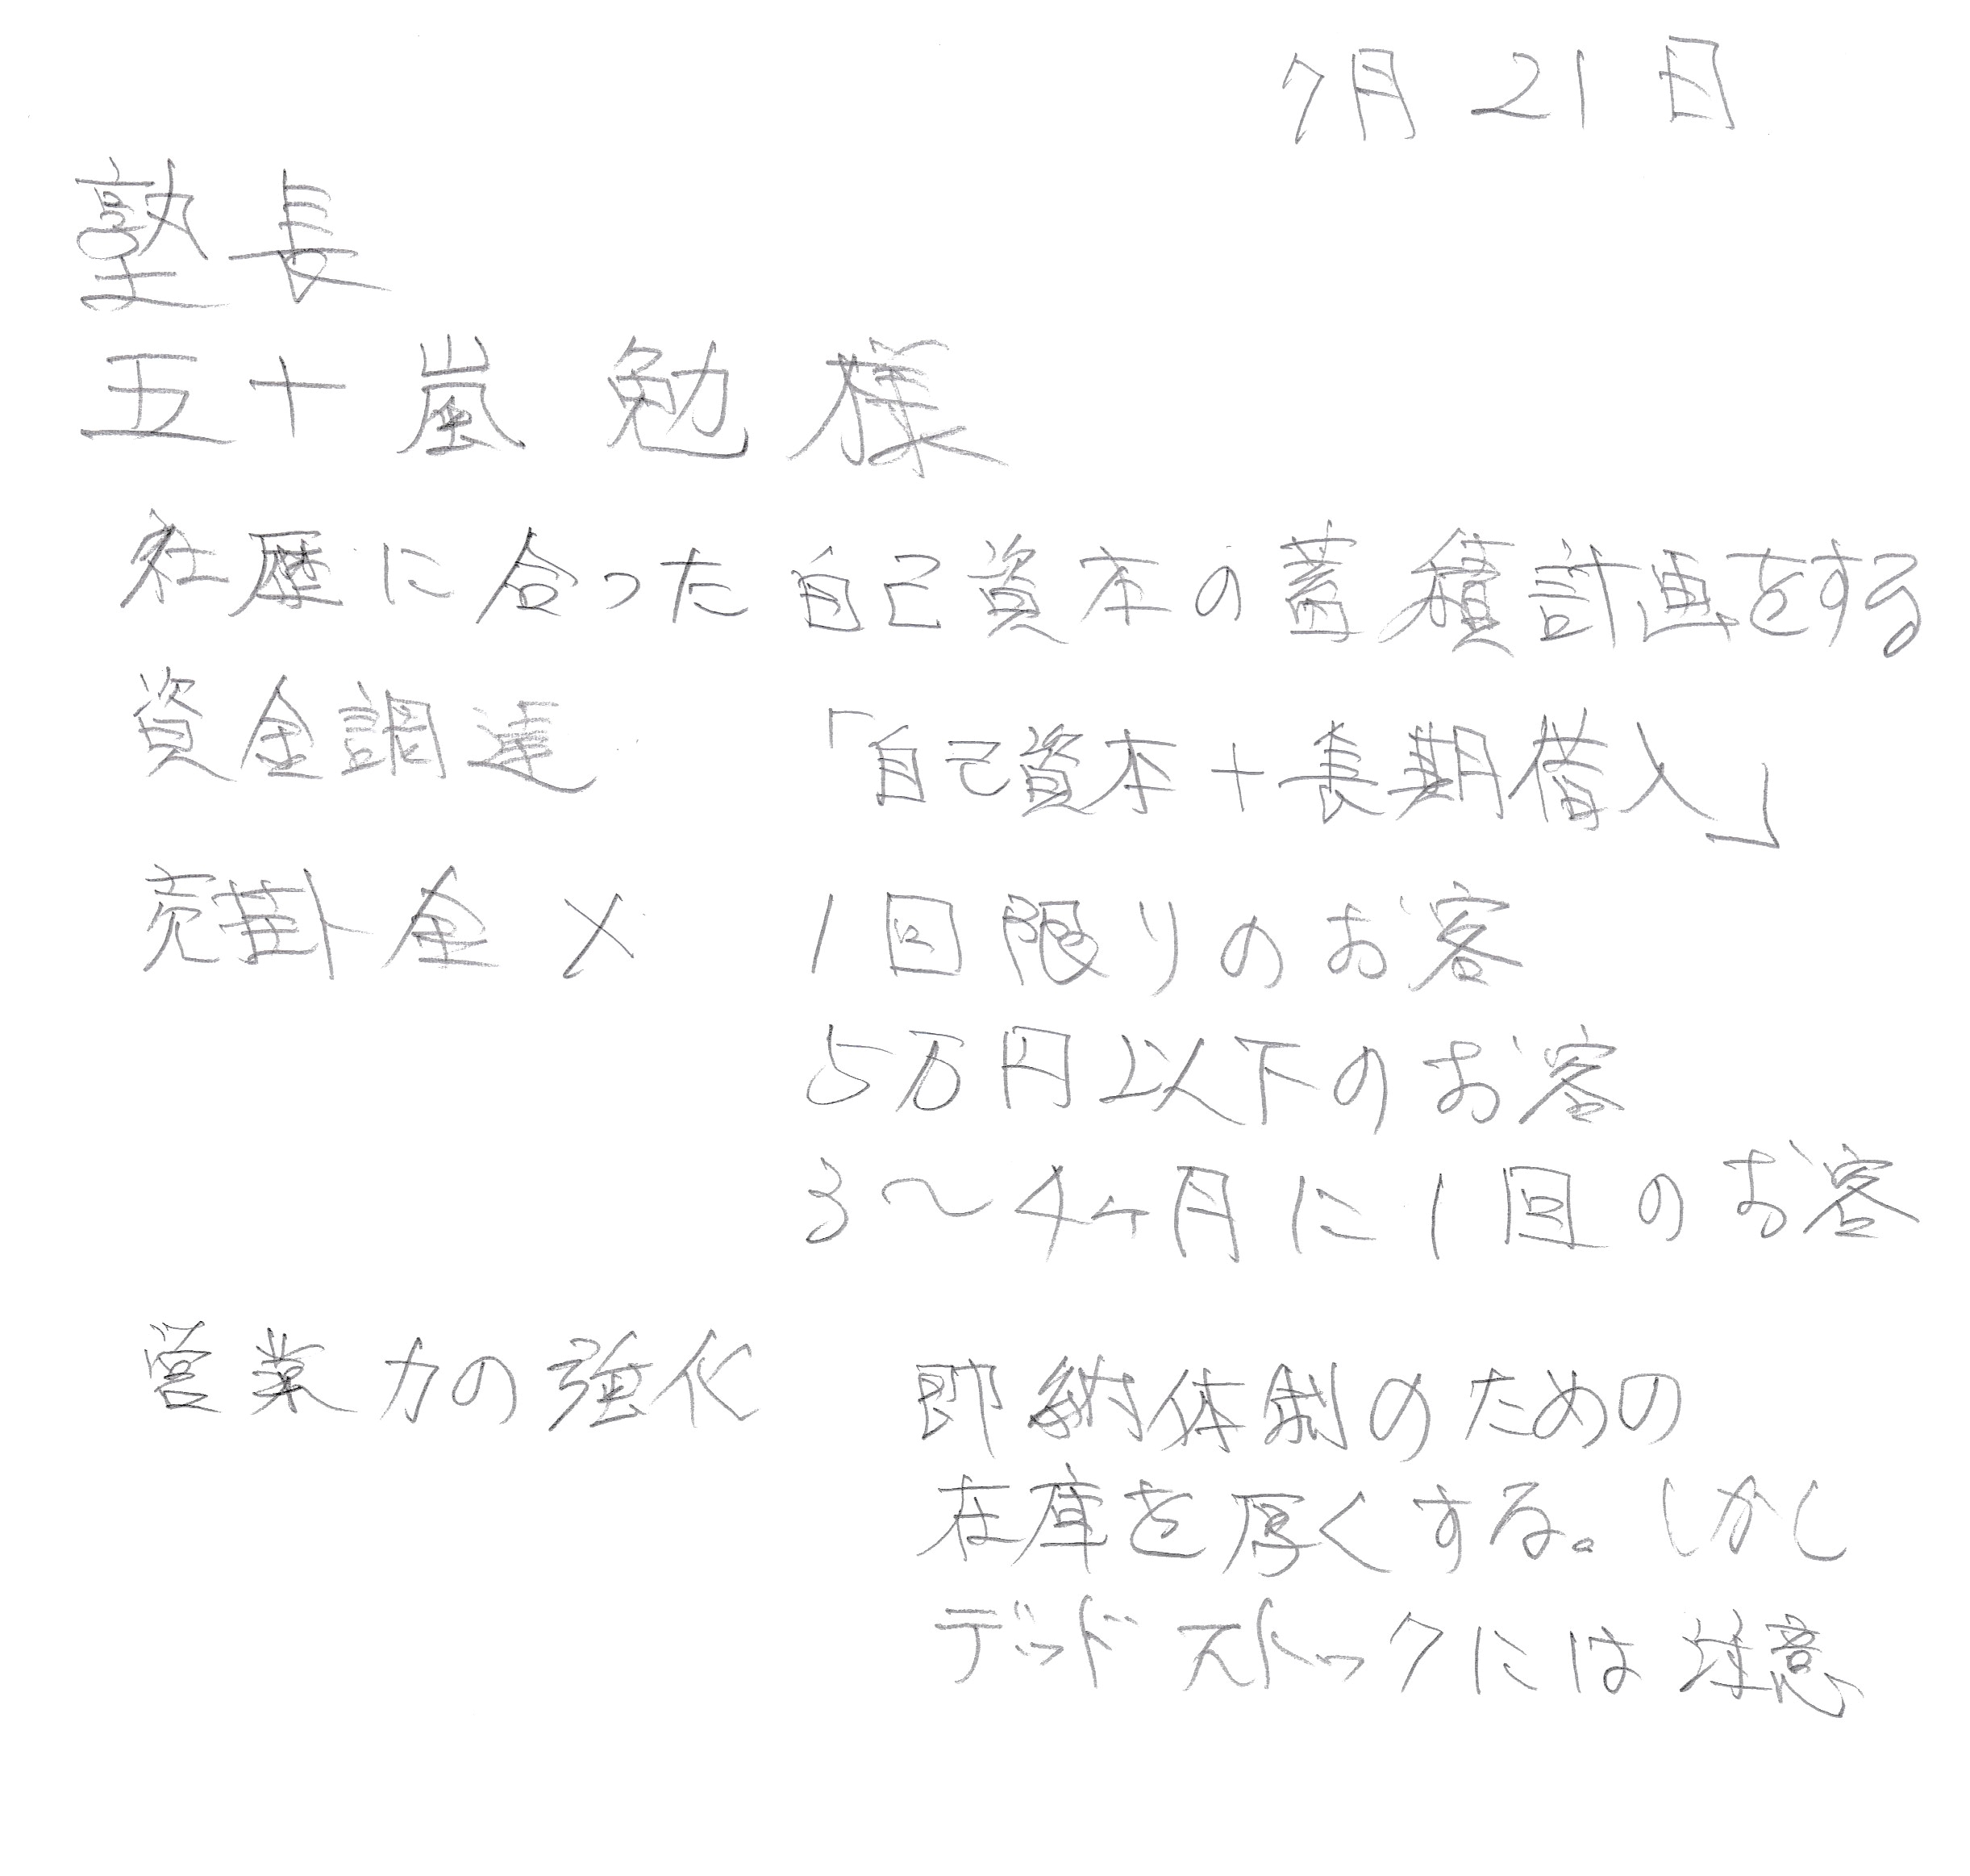 7月21日
塾長
五十嵐 勉 様
社歴に合った自己資本の蓄積計画をする
資金調達 「自己資本+長期借入」
売掛金× 1回限りのお客
5万円以下のお客
3〜4ヶ月に1回のお客
営業力の強化 即納体制のための
在庫を厚くする。しかし
デッドストックには注意